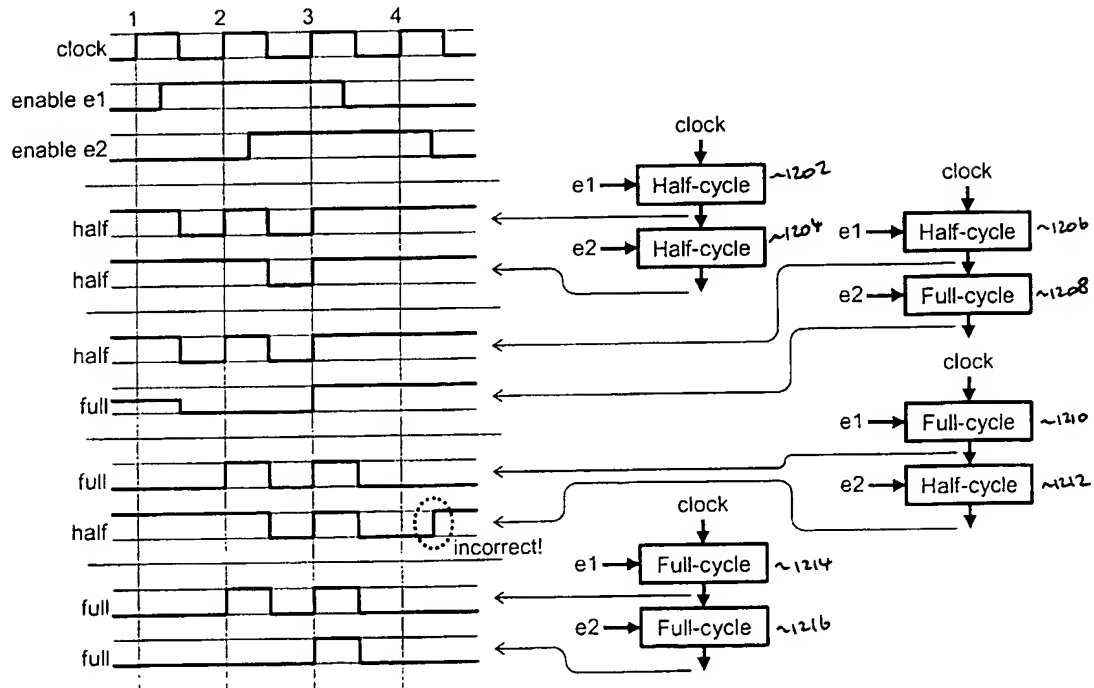 1 2 3 4
clock
enable e1
enable e2
half
half
half
full
full
half
incorrect!
full
full
clock
e1 Half-cycle ~1202
e2 Half-cycle ~1204
clock
e1 Half-cycle ~1206
e2 Full-cycle ~1208
clock
e1 Full-cycle ~1210
e2 Half-cycle ~1212
clock
e1 Full-cycle ~1214
e2 Full-cycle ~1216